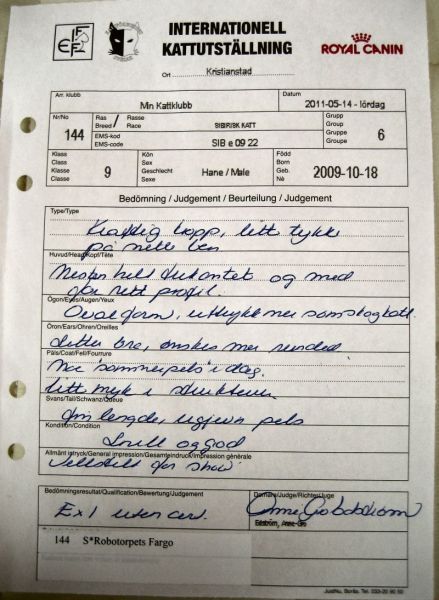 INTERNATIONELL
KATTUTSTÄLLNING
ROYAL CANIN
Ort Kristianstad
Arr. klubb
Min Kattklubb
Datum
2011-05-14 - lördag
Nr/No
144
Ras / Rasse
Breed / Race
SIBIRISK KATT
EMS-kod
EMS-code
SIB e 09 22
Grupp
Group
Gruppe
Groupe
6
Klass
Class
Klasse
Classe
9
Kön
Sex
Geschlecht
Sexe
Hane / Male
Född
Born
Geb.
Né
2009-10-18
Bedömning / Judgement / Beurteilung / Jugement
Type/Type
Kraftig kropp, litt tykk
på ben
Huvud/Head/Kopf/Tête
og med
for rett profil.
Ögon/Eyes/Augen/Yeux
Oval form, uttrykk mer som skogkatt.
Öron/Ears/Ohren/Oreilles
bra, ønskes mer runded
Päls/Coat/Fell/Fourrure
Noe "sommerpels" i dag.
litt myk i strukturen
Svans/Tail/Schwanz/Queue
Fin lengde, ugjevn pels
Kondition/Condition
og god
Allmänt intryck/General impression/Gesamteindruck/Impression générale
for show
Bedömningsresultat/Qualification/Bewertung/Judgement
Ex 1 uten cert.
Domare/Judge/Richter/Juge
Edström, Anne-Gro
144 S*Robotorpets Fargo
JustNu, Borås. Tel. 033-22 90 50